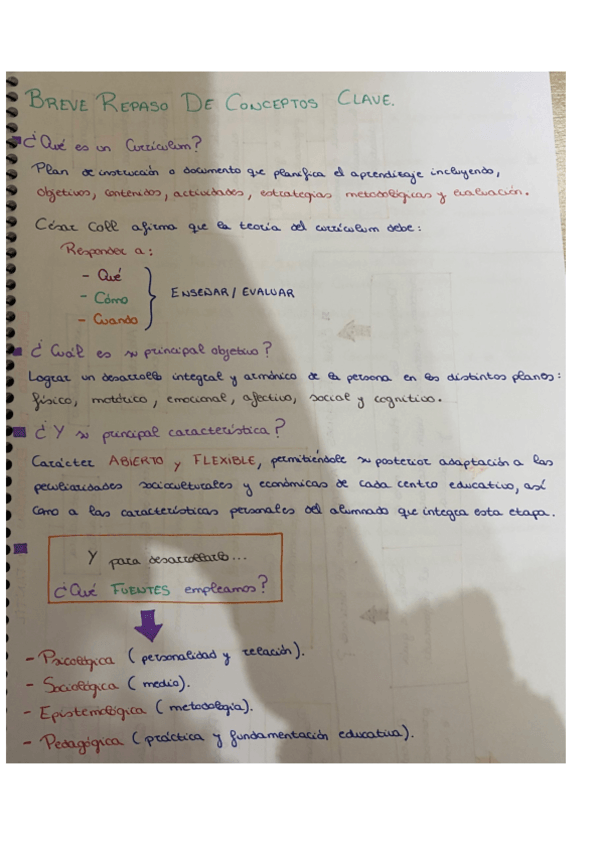 BREVE REPASO DE CONCEPTOS CLAVE.
¿Qué es un Currículum?
Plan de instrucción o documento que planifica el aprendizaje incluyendo,
objetivos, contenidos, actividades, estrategias metodológicas y evaluación.
César Coll afirma que la teoría del currículum debe:
Responder a:
- Qué
- Cómo
- Cuando
ENSEÑAR / EVALUAR
¿Cuál es su principal objetivo?
Lograr un desarrollo integral y armónico de la persona en los distintos planos:
físico, motórico, emocional, afectivo, social y cognitivo.
¿Y su principal característica?
Carácter ABIERTO y FLEXIBLE, permitiéndole su posterior adaptación a las
peculiaridades socioculturales y económicas de cada centro educativo, así
como a las características personales del alumnado que integra esta etapa.
Y para desarrollarlo...
¿Qué FUENTES empleamos?
- Psicológica (personalidad y relación).
- Sociológica (medio).
- Epistemológica (metodología).
- Pedagógica (práctica y fundamentación educativa).